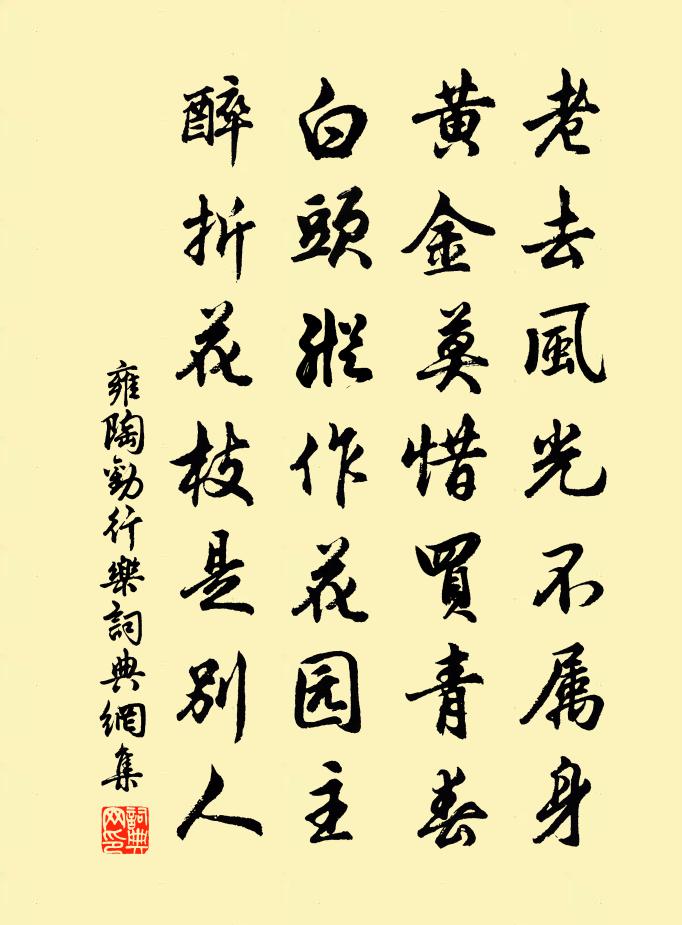 老去風光不属身
黄金莫惜買青春
白頭縱作花园主
醉折花枝是別人
雍陶勸行樂詞典網集
詞典網印